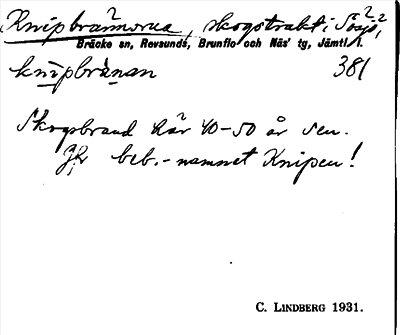 Knipbrännorna, skogstrakt i Sösjö,
Bräcke sn, Revsunds, Brunflo och Näs' tg, Jämtl. l.
knipbränan 381
Skogsbrand här 40-50 år sen.
Jfr beb.-namnet Knipen!
C. LINDBERG 1931.